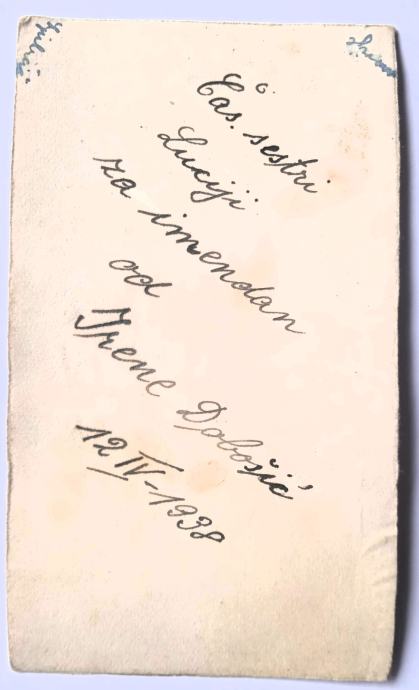 Čas. sestri
Luciji
za imendan
od
Irene Dobošić
12 IV - 1938